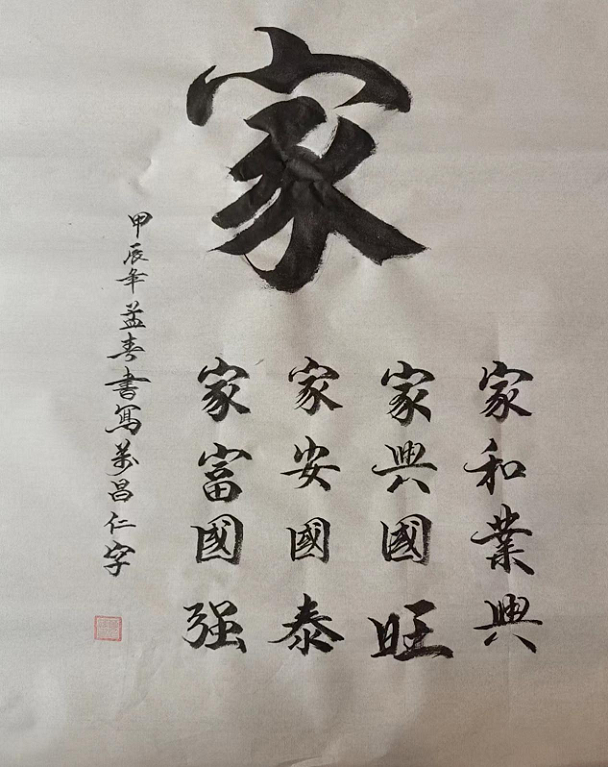 家
家和業興
家興國旺
家安國泰
家富國强
甲辰年益春書寫萬昌仁字